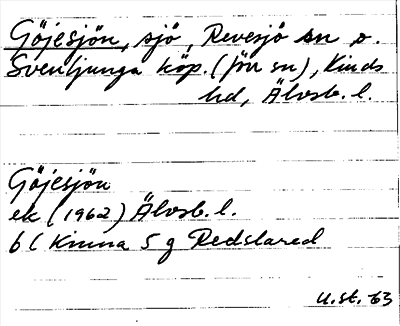 Göjesjön, sjö, Revesjö sn o.
Svenljunga köp. (förr sn), Kinds
hd, Älvsb. l.
Göjesjön
ek (1962) Älvsb. l.
6 C Kinna 5 g Redslared
U.st. 63